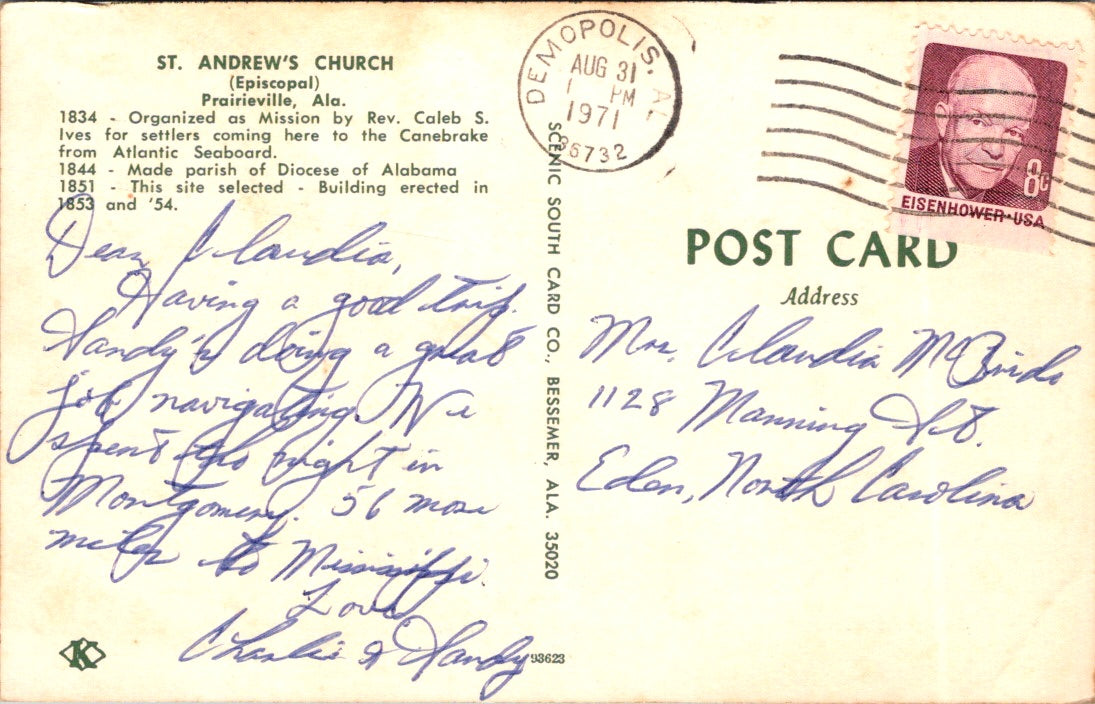 ST. ANDREW'S CHURCH
(Episcopal)
Prairieville, Ala.
1834 - Organized as Mission by Rev. Caleb S.
Ives for settlers coming here to the Canebrake
from Atlantic Seaboard.
1844 - Made parish of Diocese of Alabama
1851 - This site selected - Building erected in
1853 and '54.
Dear Claudia,
Having a good trip.
Handy's doing a great
job navigating. We
spent the night in
Montgomery. 56 more
miles to Mississippi.
Love
Charlie & Handy
K
93623
SCENIC SOUTH CARD CO., BESSEMER, ALA. 35020
DEMOPOLIS. AL
AUG 31
1 PM
1971
36732
8¢
EISENHOWER·USA
POST CARD
Address
Mrs. Claudia McBride
1128 Manning St.
Eden, North Carolina